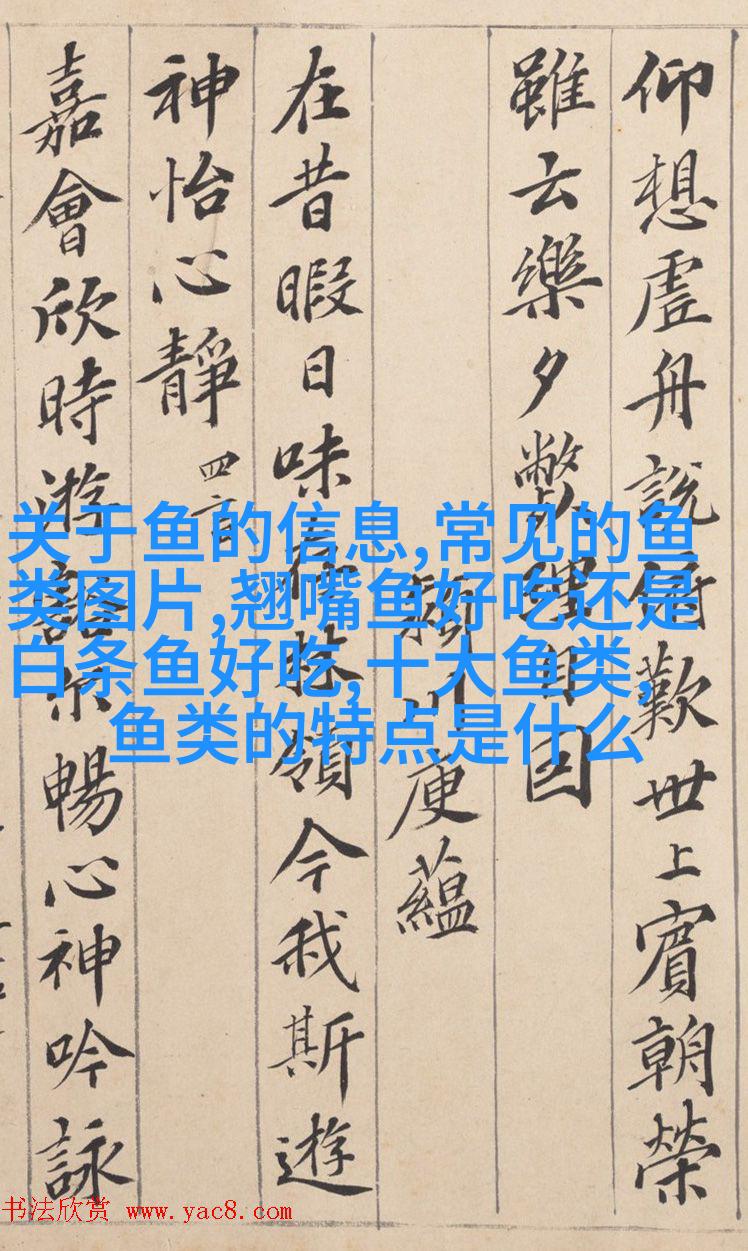 仰想虗舟說俯歎世上賓朝榮
雖云樂夕弊理自因
川庾蘊
在昔暇日味存林嶺今我斯遊
神怡心靜 四言
嘉會欣時遊豁尓暢心神吟詠
关于鱼的信息,常见的鱼
类图片,翘嘴鱼好吃还是
白条鱼好吃,十大鱼类,
鱼类的特点是什么
书法欣赏 www.yac8.com